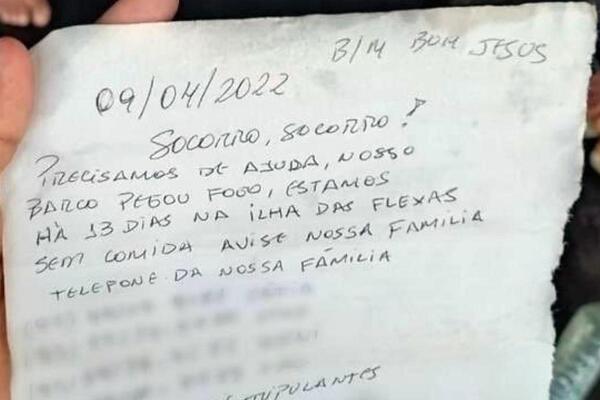 B/M BOM JESUS
09/04/2022
SOCORRO, SOCORRO!
PRECISAMOS DE AJUDA, NOSSO
BARCO PEGOU FOGO, ESTAMOS
HÀ 13 DIAS NA ILHA DAS FLEXAS
SEM COMIDA AVISE NOSSA FAMILIA
TELEPONE DA NOSSA FAMILIA